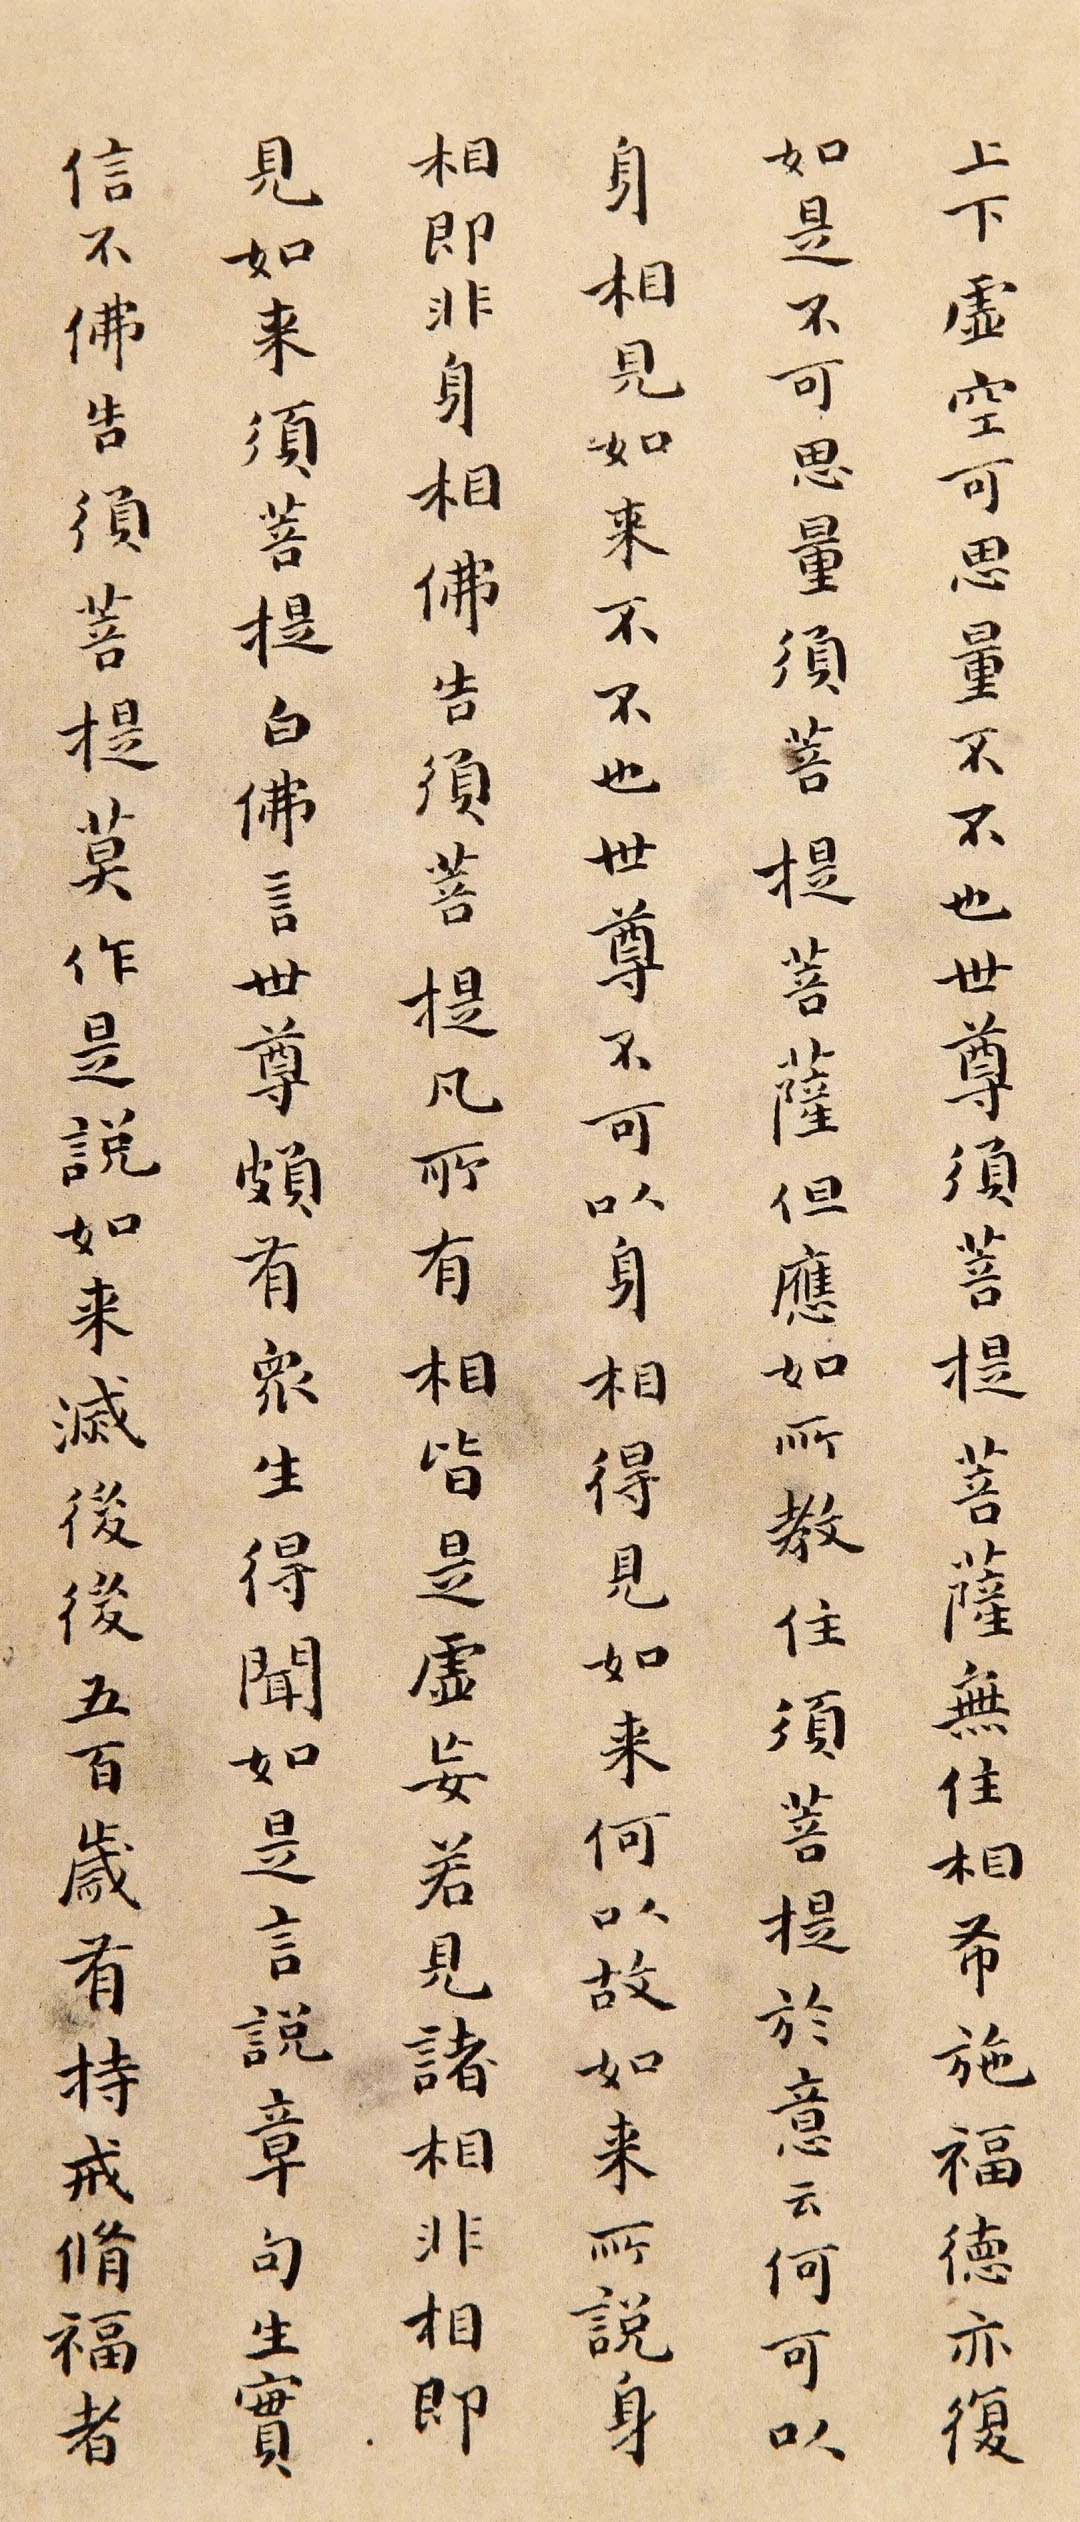 上下虛空可思量不不也世尊須菩提菩薩無住相布施福德亦復
如是不可思量須菩提菩薩但應如所教住須菩提於意云何可以
身相見如来不不也世尊不可以身相得見如来何以故如来所說身
相即非身相佛告須菩提凡所有相皆是虛妄若見諸相非相即
見如来須菩提白佛言世尊頗有眾生得聞如是言說章句生實
信不佛告須菩提莫作是說如来滅後後五百歲有持戒脩福者